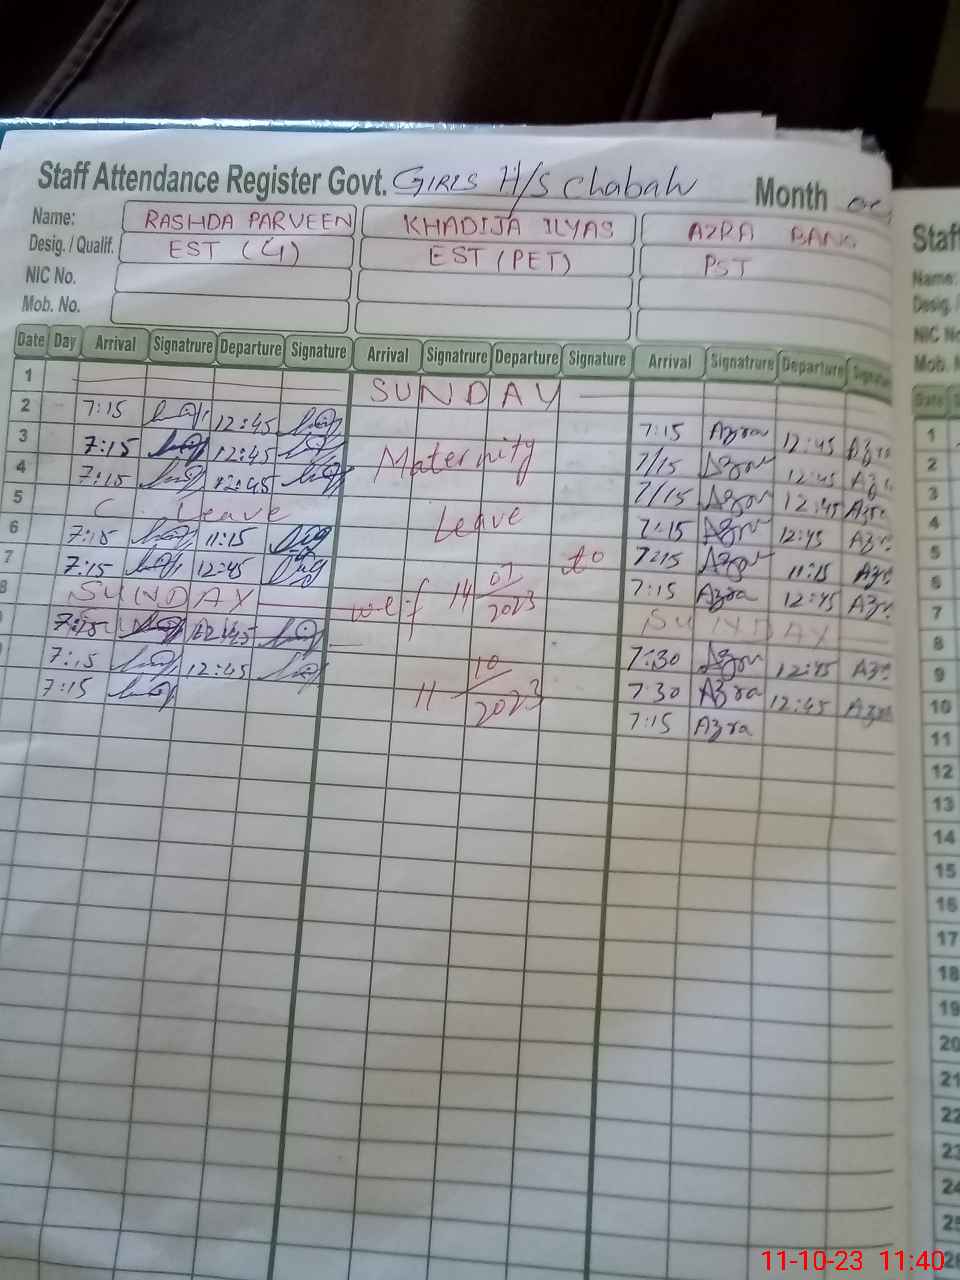 Staff Attendance Register Govt. GIRLS H/S Chabah Month
Name: RASHDA PARVEEN KHADIJA ILYAS AZRA BANO
Desig. / Qualif. EST (G) EST (PET) PST
NIC No.
Mob. No.
Date Day Arrival Signatrure Departure Signature Arrival Signatrure Departure Signature Arrival Signatrure Departure Signature
1 SUNDAY
2 7:15 12:45 7:15 Azra 12:45 Azra
3 7:15 12:45 Maternity 7/15 Azra 12:45 Azra
4 7:15 12:45 7/15 Azra 12:45 Azra
5 C. Leave Leave 7:15 Azra 12:45 Azra
6 7:15 11:15 7:15 Azra 11:15 Azra
7 7:15 12:45 w.e.f 14 07/2023 to 7:15 Azra 12:45 Azra
8 SUNDAY SUNDAY
7:15 12:45 7:30 Azra 12:45 Azra
7:15 12:45 11 10/2023 7:30 Azra 12:45 Azra
7:15 7:15 Azra
Staff
Name:
Desig.
NIC No
Mob. N
Date
1
2
3
4
5
6
7
8
9
10
11
12
13
14
15
16
17
18
19
20
21
22
23
24
25
26
11-10-23 11:40